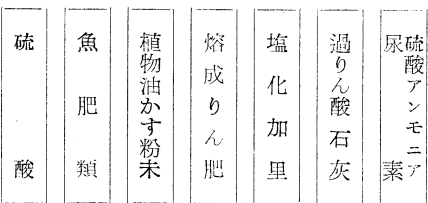 硫酸アンモニア
尿素
過りん酸石灰
塩化加里
熔成りん肥
植物油かす粉末
魚肥類
硫酸